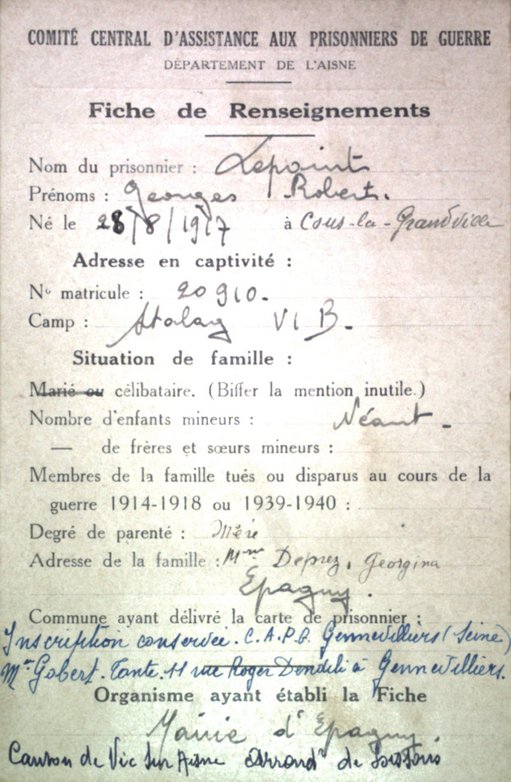 COMITÉ CENTRAL D'ASSISTANCE AUX PRISONNIERS DE GUERRE
DÉPARTEMENT DE L'AISNE
Fiche de Renseignements
Nom du prisonnier : Lepoint
Prénoms : Georges Robert.
Né le 28/8/1917 à Cous-la-Grandville
Adresse en captivité :
No matricule : 20910.
Camp : Stalag VI B.
Situation de famille :
Marié ou célibataire. (Biffer la mention inutile.)
Nombre d'enfants mineurs : Néant -
— de frères et sœurs mineurs :
Membres de la famille tués ou disparus au cours de la
guerre 1914-1918 ou 1939-1940 :
Degré de parenté : Mère
Adresse de la famille : Mme Deprez, Georgina
Epagny.
Commune ayant délivré la carte de prisonnier :
Inscription conservée. C.A.P.G. Gennevilliers (Seine)
Gobert. Tante. 11 rue Roger à Gennevilliers.
Organisme ayant établi la Fiche
Mairie d'Epagny
Canton de Vic sur Aisne Arrondt de Soissons